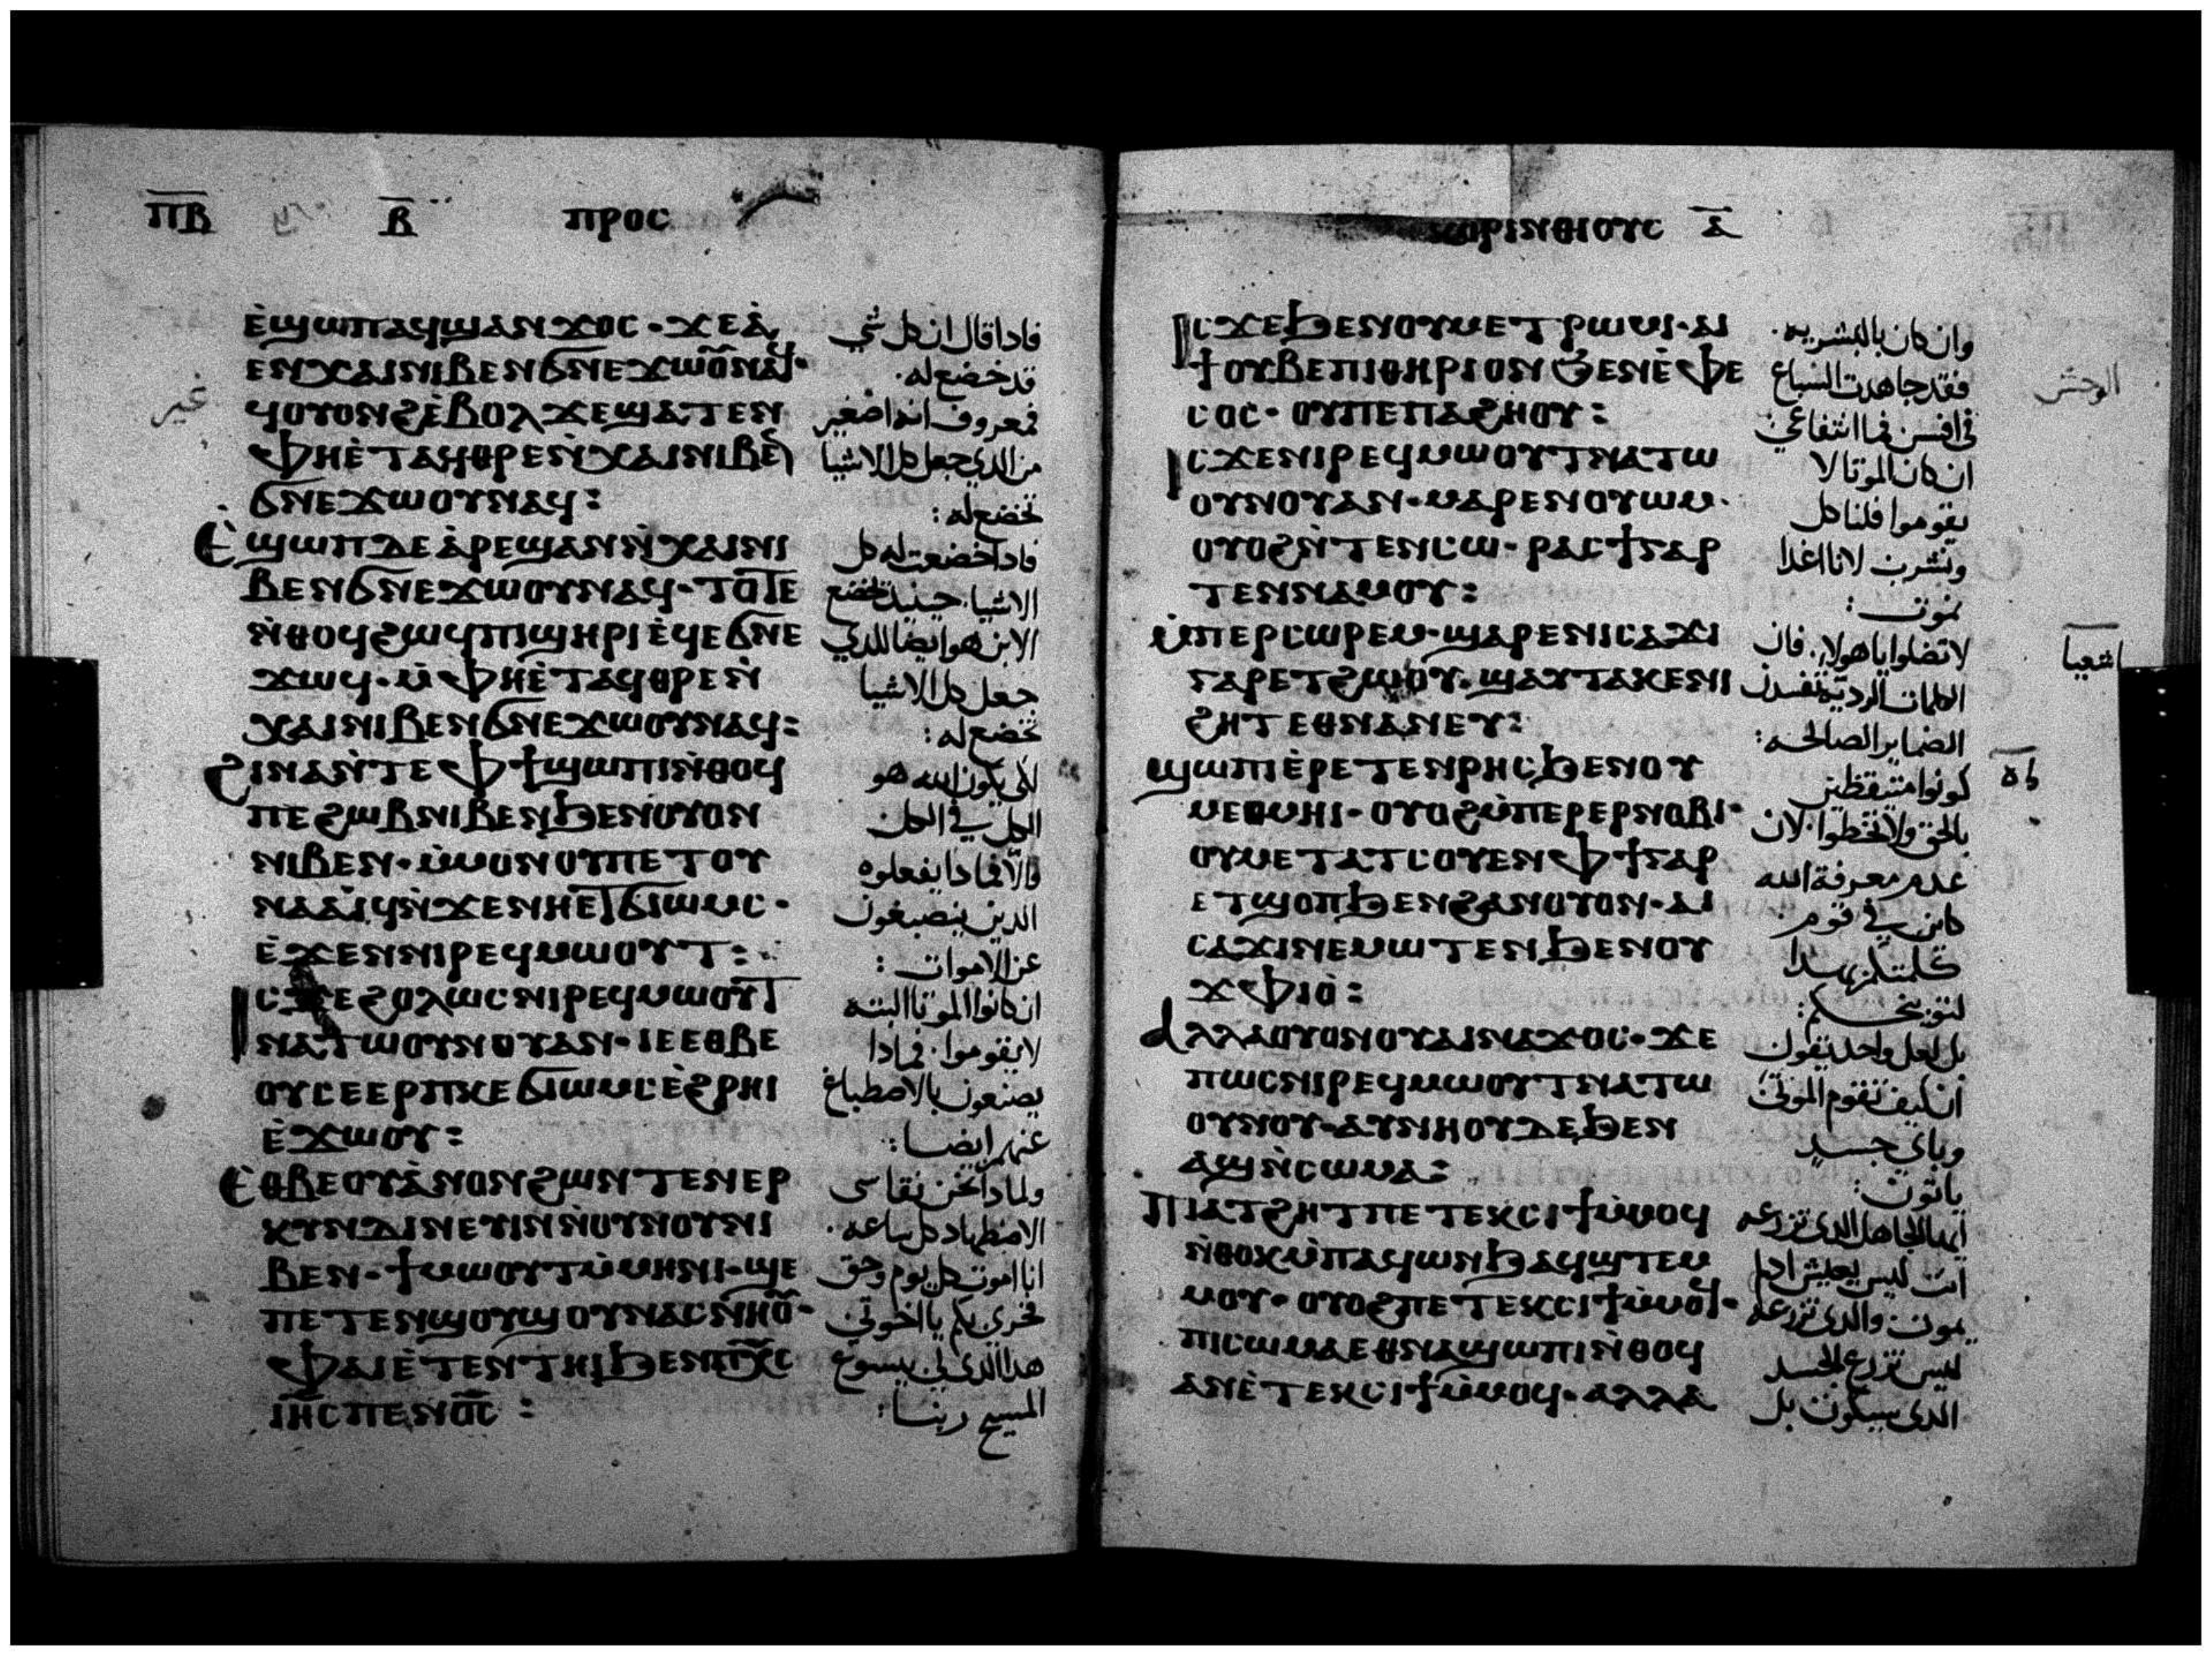 ⲠⲂ Ⲃ ⲠⲢⲞⲤ
ⲉ̀ϣⲱⲡⲁϥϣⲁⲛϫⲟⲥ· ϫⲉⲁ̀
ⲉⲛⲭⲁⲓⲛⲓⲃⲉⲛϭⲛⲉϫⲱⲟⲩⲛⲁϥ·
ϥⲟⲩⲟⲛϩⲉ̀ⲃⲟⲗϫⲉϣⲁⲧⲉⲛ
ⲫⲏⲉ̀ⲧⲁϥⲑⲣⲉⲛ̀ⲭⲁⲓⲛⲓⲃⲉⲛ
ϭⲛⲉϫⲱⲟⲩⲛⲁϥ:
Ⲉ̀ϣⲱⲡⲇⲉⲁ̀ⲣⲉϣⲁⲛⲛ̀ⲭⲁⲓⲛⲓ
ⲃⲉⲛϭⲛⲉϫⲱⲟⲩⲛⲁϥ· ⲧⲟⲧⲉ
ⲛ̀ⲑⲟϥϩⲱϥⲡⲓϣⲏⲣⲓⲉ̀ϥⲉϭⲛⲉ
ϫⲱϥ· ⲙ̀ⲫⲏⲉ̀ⲧⲁϥⲑⲣⲉⲛ̀
ⲭⲁⲓⲛⲓⲃⲉⲛϭⲛⲉϫⲱⲟⲩⲛⲁϥ:
ϩⲓⲛⲁⲛ̀ⲧⲉⲫϯϣⲱⲡⲓⲛ̀ⲑⲟϥ
ⲡⲉϩⲱⲃⲛⲓⲃⲉⲛϧⲉⲛⲟⲩⲟⲛ
ⲛⲓⲃⲉⲛ· ⲙ̀ⲙⲟⲛⲟⲩⲡⲉⲧⲟⲩ
ⲛⲁⲁⲓϥⲛ̀ϫⲉⲛⲏⲉⲧϭⲓⲱⲙⲥ·
ⲉ̀ϫⲉⲛⲛⲓⲣⲉϥⲙⲱⲟⲩⲧ:
ⲓⲥϫⲉϩⲟⲗⲱⲥⲛⲓⲣⲉϥⲙⲱⲟⲩⲧ
ⲛⲁⲧⲱⲟⲩⲛⲟⲩⲁⲛ· ⲓⲉⲉⲑⲃⲉ
ⲟⲩⲥⲉⲉⲣⲡⲕⲉϭⲓⲱⲙⲥⲉ̀ϩⲣⲏⲓ
ⲉ̀ϫⲱⲟⲩ:
Ⲉⲑⲃⲉⲟⲩⲁ̀ⲛⲟⲛϩⲱⲛⲧⲉⲛⲉⲣ
ⲕⲩⲛⲇⲓⲛⲉⲩⲓⲛⲛ̀ⲟⲩⲛⲟⲩⲛⲓ
ⲃⲉⲛ· ϯⲙⲱⲟⲩⲧⲙ̀ⲙⲏⲛⲓ· ϣⲉ
ⲡⲉⲧⲉⲛϣⲟⲩϣⲟⲩⲛⲁⲥⲛⲏⲟⲩ·
ⲫⲁⲓⲉ̀ⲧⲉⲛⲧⲏⲓϧⲉⲛⲡⲭⲥ
ⲓⲏⲥⲡⲉⲛⲟⲥ:
فادا قال ان كل شي
قد خضع له.
غير
فمعروف انه اصغير
من الدي جعل كل الاشيا
تخضع له:
فادا خضعت له كل
الاشيا. حينيد تخضع
الابن هو ايضا للدي
جعل كل الاشيا
تخضع له:
لكي يكون الله هو
الكل في الكل
والا فمادا يفعلوه
الدين ينصبغون
عن الاموات:
ان كانوا الموتا البتة
لا يقوموا. فمادا
يصنعون بالاصطباغ
عنهم ايضا:
ولمادا نحن نقاسى
الاضطهاد كل ساعه.
انا اموت كل يوم وحق
فخري بكم يا اخوتي
هدا الدي لي بيسوع
المسيح ربنا:
ⲕⲟⲣⲓⲛⲑⲓⲟⲩⲥ ⲁ̅
ⲓⲥϫⲉϧⲉⲛⲟⲩⲙⲉⲧⲣⲱⲙⲓ· ⲁⲓ
ϯⲟⲩⲃⲉⲡⲓⲑⲏⲣⲓⲟⲛϧⲉⲛⲉ̀ⲫⲉ
ⲥⲟⲥ· ⲟⲩⲡⲉⲡⲁϩⲏⲟⲩ:
ⲓⲥϫⲉⲛⲓⲣⲉϥⲙⲱⲟⲩⲧⲛⲁⲧⲱ
ⲟⲩⲛⲟⲩⲁⲛ· ⲙⲁⲣⲉⲛⲟⲩⲱⲙ·
ⲟⲩⲟϩⲛ̀ⲧⲉⲛⲥⲱ· ⲣⲁⲥϯⲅⲁⲣ
ⲧⲉⲛⲛⲁⲙⲟⲩ:
ⲙ̀ⲡⲉⲣⲥⲱⲣⲉⲙ· ϣⲁⲣⲉⲛⲓⲥⲁϫⲓ
ⲅⲁⲣⲉⲧϩⲱⲟⲩ· ϣⲁⲩⲧⲁⲕⲉⲛⲓ
ϩⲏⲧⲉⲑⲛⲁⲛⲉⲩ:
ϣⲱⲡⲓⲉ̀ⲣⲉⲧⲉⲛⲣⲏⲥϧⲉⲛⲟⲩ
ⲙⲉⲑⲙⲏⲓ· ⲟⲩⲟϩⲙ̀ⲡⲉⲣⲉⲣⲛⲟⲃⲓ·
ⲟⲩⲙⲉⲧⲁⲧⲥⲟⲩⲉⲛⲫϯⲅⲁⲣ
ⲉⲧϣⲟⲡϧⲉⲛϩⲁⲛⲟⲩⲟⲛ· ⲁⲓ
ⲥⲁϫⲓⲛⲉⲙⲱⲧⲉⲛϧⲉⲛⲟⲩ
ϫⲫⲓⲟ̀:
Ⲁⲗⲗⲁⲟⲩⲟⲛⲟⲩⲁⲓⲛⲁϫⲟⲥ· ϫⲉ
ⲡⲱⲥⲛⲓⲣⲉϥⲙⲱⲟⲩⲧⲛⲁⲧⲱ
ⲟⲩⲛⲟⲩ· ⲁⲩⲛⲏⲟⲩⲇⲉϧⲉⲛ
ⲁϣⲛ̀ⲥⲱⲙⲁ:
Ⲡⲓⲁⲧϩⲏⲧⲡⲉⲧⲉⲕⲥⲓϯⲙ̀ⲙⲟϥ
ⲛ̀ⲑⲟⲕⲙ̀ⲡⲁϥⲱⲛϧⲁϥϣⲧⲉⲙ
ⲙⲟⲩ· ⲟⲩⲟϩⲡⲉⲧⲉⲕⲥⲓϯⲙ̀ⲙⲟϥ·
ⲡⲓⲥⲱⲙⲁⲉⲑⲛⲁϣⲱⲡⲓⲛ̀ⲑⲟϥ
ⲁⲛⲉ̀ⲧⲉⲕⲥⲓϯⲙ̀ⲙⲟϥ· ⲁⲗⲗⲁ
وان كان بالبشريه.
فقد جاهدت السباع
الوحش
في افسس فما انتفاعي
ان كان الموتا لا
يقوموا فلناكل
ونشرب لانا غدا
نموت:
لا تضلوا يا هولاء. فان
اشعيا
الكلمات الرديه تفسدن
الضماير الصالحه:
كونوا متيقظين
بالحق ولا تخطوا. لان
عدم معرفة الله
كاين في قوم
كلمتكم بهدا
لتوبيخكم:
بل لعل واحد يقول
ان كيف تقوم الموتى
وباي جسد
ياتون:
ايها الجاهل الدى تزرعه
انت ليس يعيش ادا لم
يموت والدى تزرعه
ليس تزرع الجسد
الدى سيكون بل